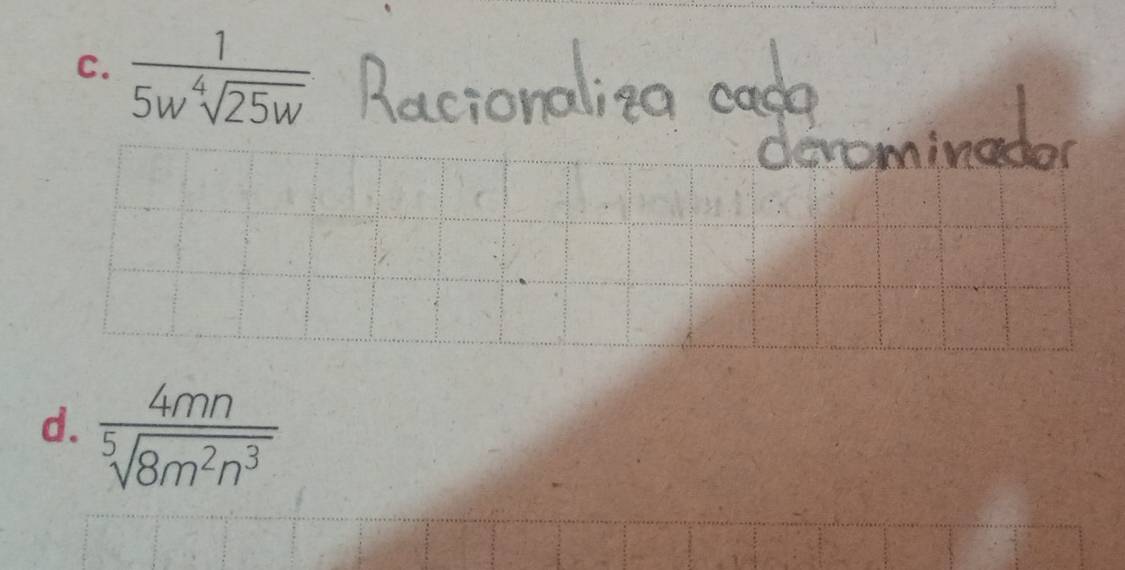 c. \frac{1}{5w\sqrt[4]{25w}} Racionaliza cada
denominador
d. \frac{4mn}{\sqrt[5]{8m^2n^3}}